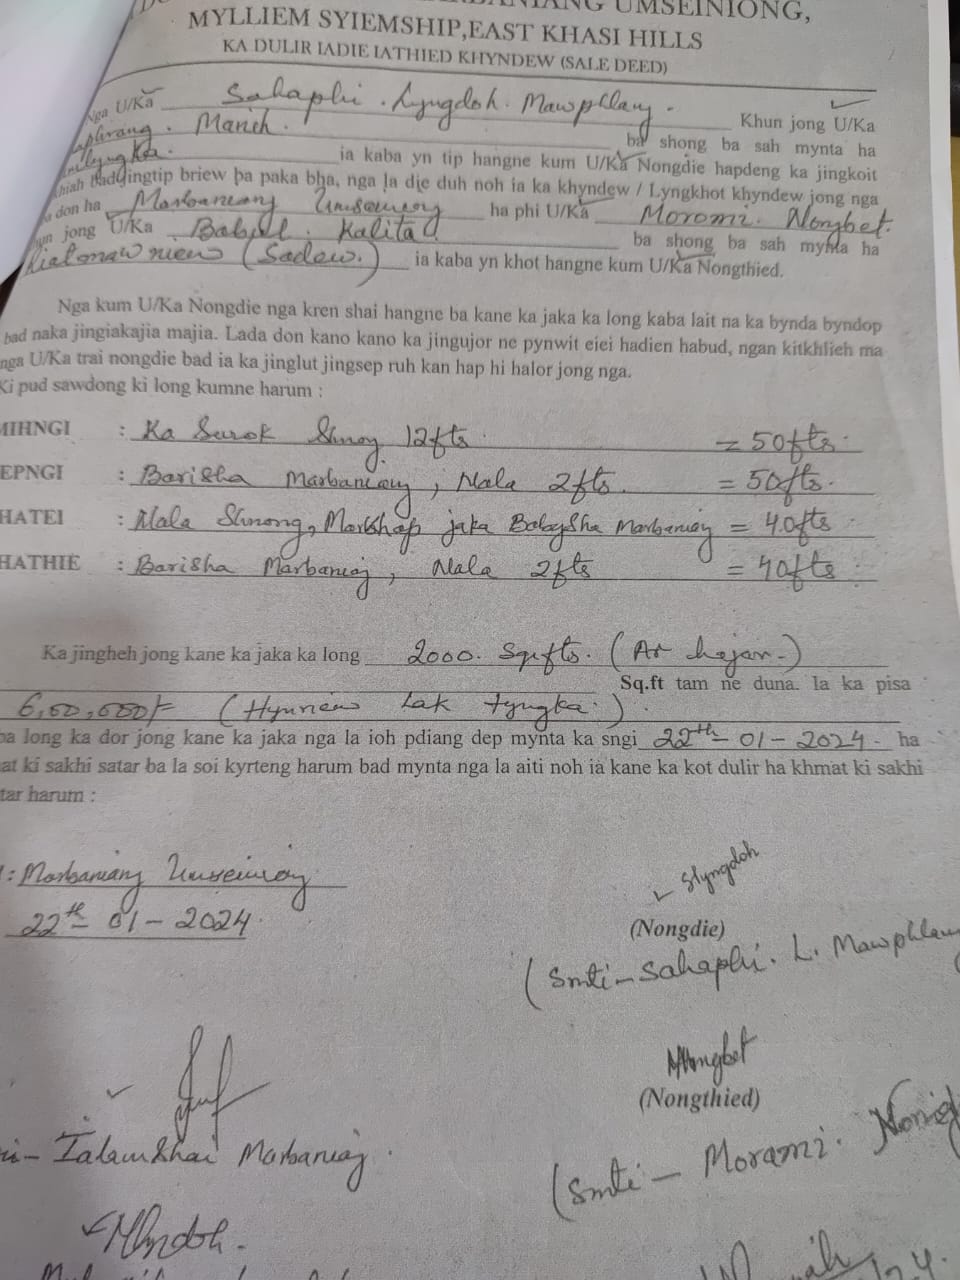 UMSEINIONG,
MYLLIEM SYIEMSHIP, EAST KHASI HILLS
KA DULIR IADIE IATHIED KHYNDEW (SALE DEED)
Nga U/Ka Sahaphi . Lyngdoh . Mawphlang . Khun jong U/Ka
. Manik . ba shong ba sah mynta ha
ia kaba yn tip hangne kum U/Ka Nongdie hapdeng ka jingkoit
jingtip briew ba paka bha, nga la die duh noh ia ka khyndew / Lyngkhot khyndew jong nga
don ha Marbaniang Umseiniong ha phi U/Ka Moromi . Nongbet.
jong U/Ka Babul . Kalita ba shong ba sah mynta ha
(Sadew.) ia kaba yn khot hangne kum U/Ka Nongthied.
Nga kum U/Ka Nongdie nga kren shai hangne ba kane ka jaka ka long kaba lait na ka bynda byndop
bad naka jingiakajia majia. Lada don kano kano ka jingujor ne pynwit eiei hadien habud, ngan kitkhlieh ma
nga U/Ka trai nongdie bad ia ka jinglut jingsep ruh kan hap hi halor jong nga.
Ki pud sawdong ki long kumne harum :
MIHNGI : Ka Surok Shnong 12fts = 50fts.
EPNGI : Barisha Marbaniang, Nala 2fts. = 50fts.
HATEI : Nala Shnong, Markhap jaka Babysha Marbaniang = 40fts
HATHIE : Barisha Marbaniang, Nala 2fts = 40fts
Ka jingheh jong kane ka jaka ka long 2000. Sq.fts. (Ar hajar.)
Sq.ft tam ne duna. Ia ka pisa
6,00,000/- (Hynriew Lak tyngka.)
ba long ka dor jong kane ka jaka nga la ioh pdiang dep mynta ka sngi 22th - 01 - 2024 - ha
at ki sakhi satar ba la soi kyrteng harum bad mynta nga la aiti noh ia kane ka kot dulir ha khmat ki sakhi
tar harum :
: Marbaniang Umseiniong
22th - 01 - 2024.
Slyngdoh
(Nongdie)
(Smti - Sahaphi. L. Mawphlang
Nongbet
(Nongthied)
(Smti - Morami.
Marbaniang.